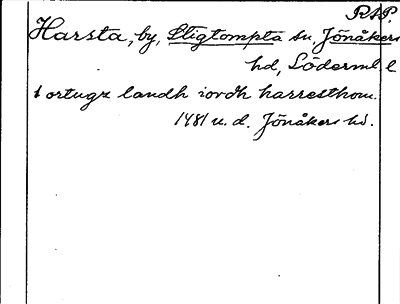 RAP.
Harsta, by, Stigtompta sn, Jönåkers
hd, Söderml l
1 ortugx landh iordh harresthom.
1481 u. d. Jönåkers hd.